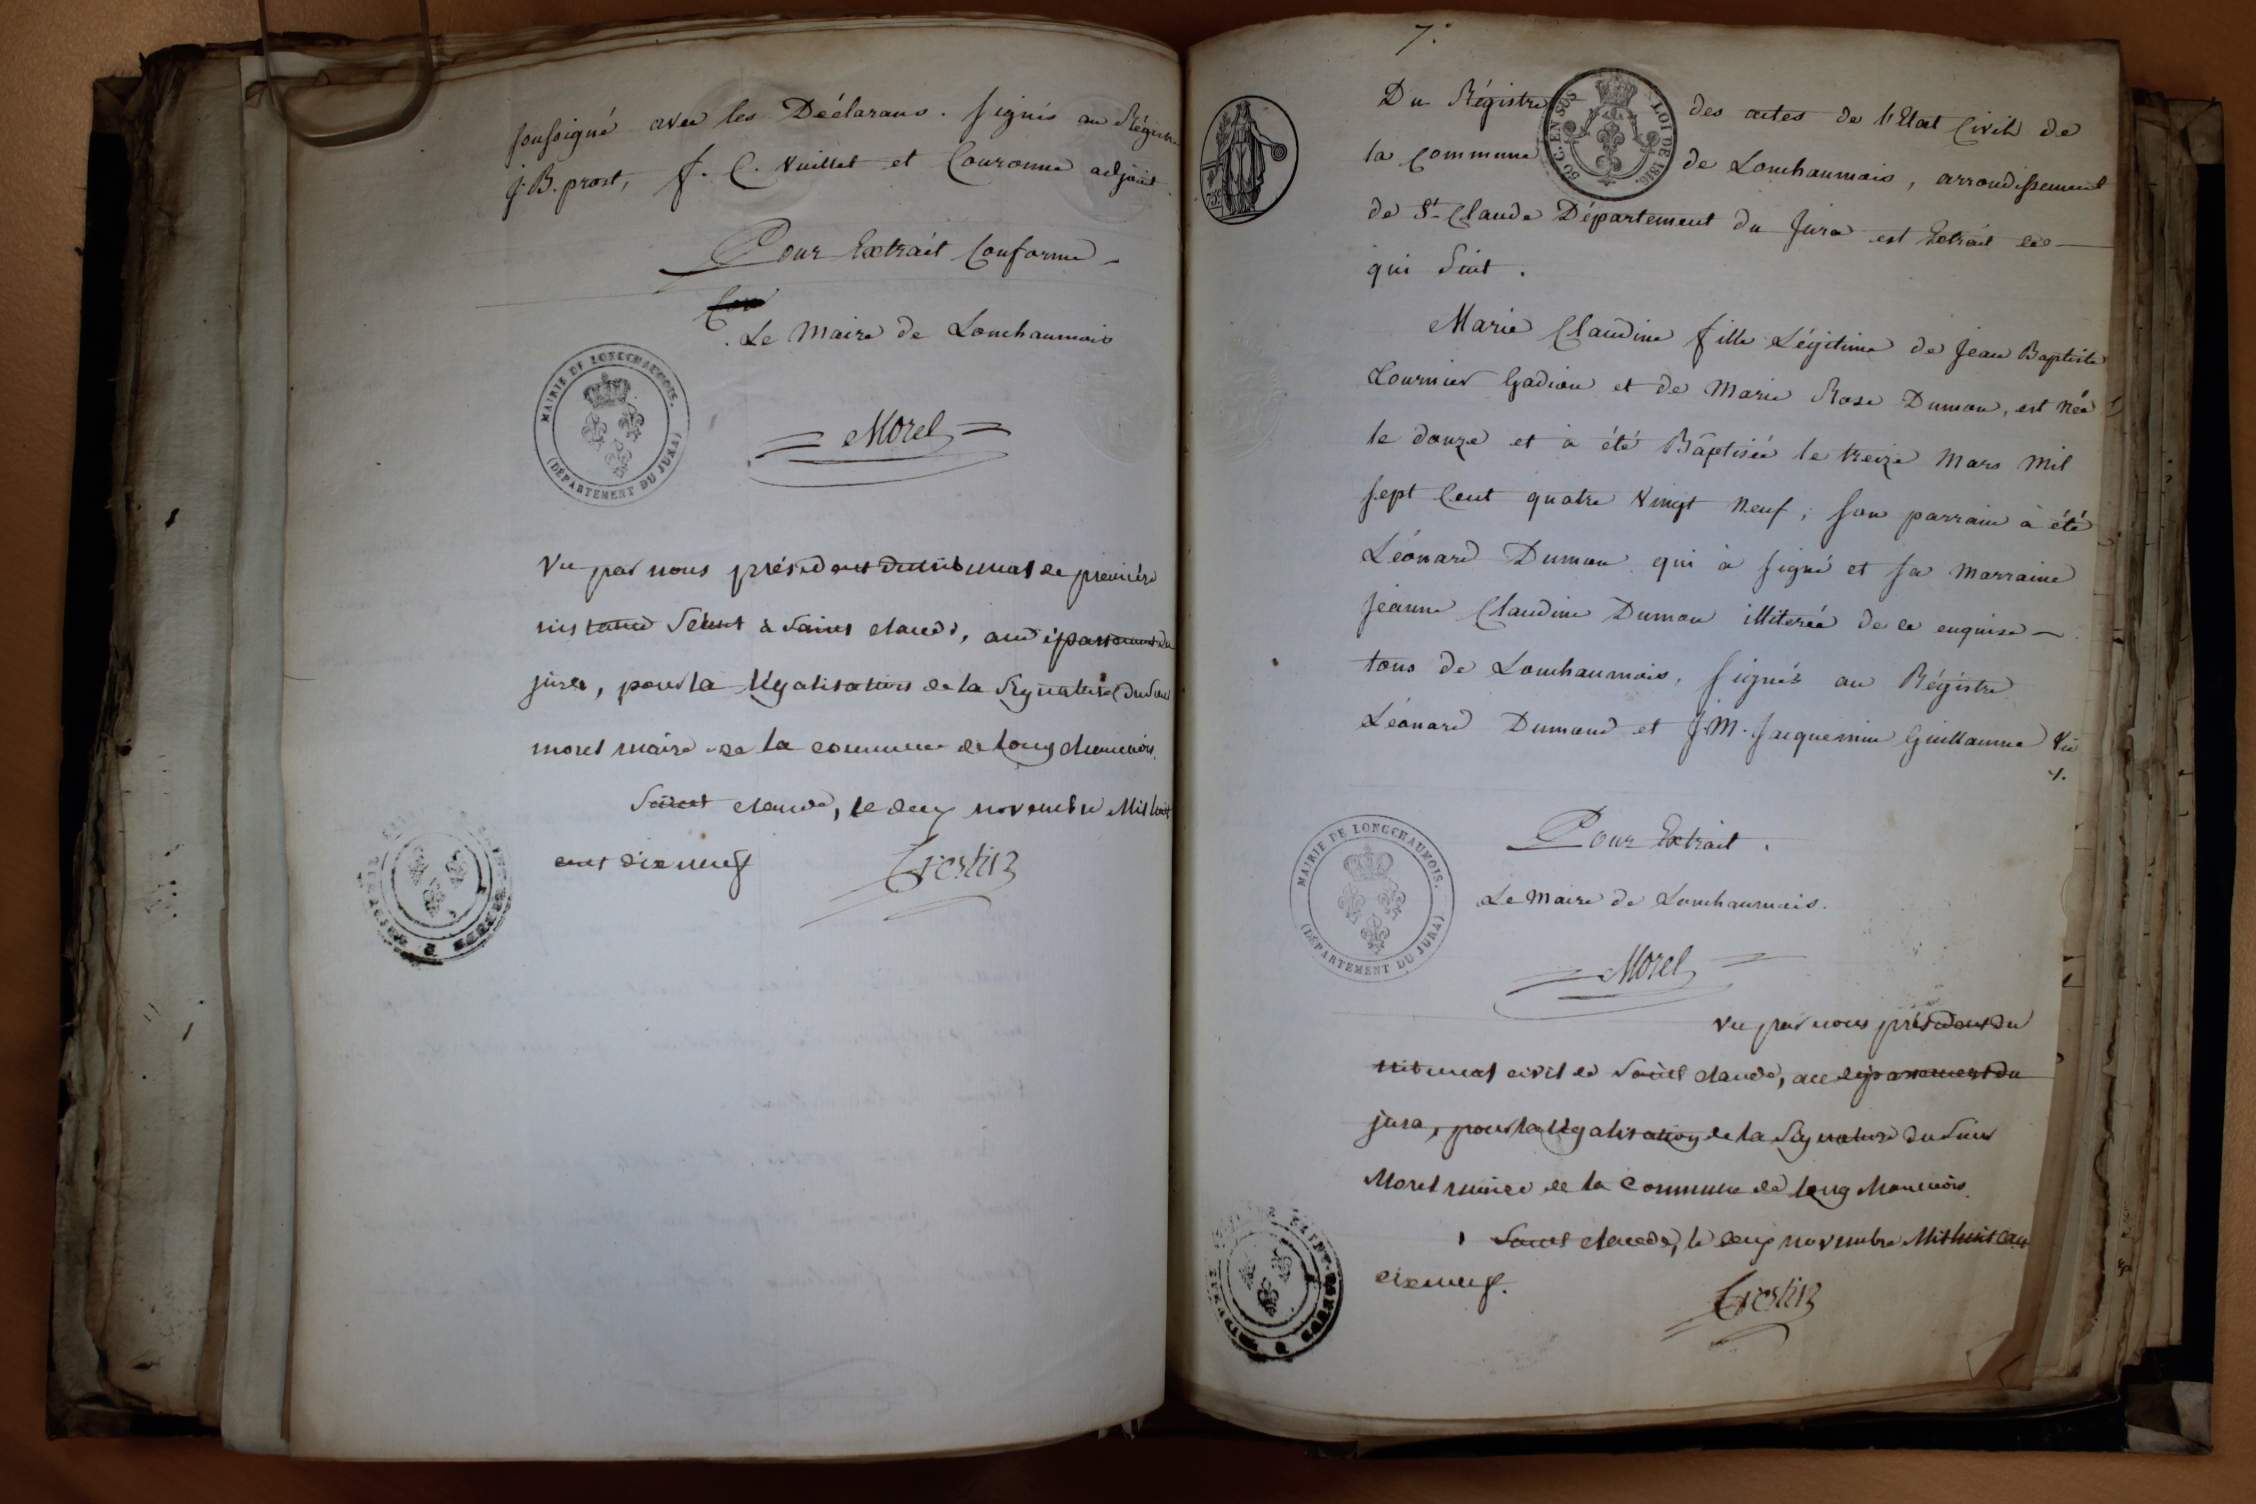 soussigné avec les Déclarans. signés au Régistre
J. B. prost, J. C. Vuillet et Couronne adjoint.
Pour Extrait Conforme
Le Maire de Lonchaumois
MAIRIE DE LONGCHAUMOIS.
(DÉPARTEMENT DU JURA)
Morel
Vu par nous président du tribunal de première
instance séant à Saint claude, au département du
jura, pour la légalisation de la signature du sieur
morel maire de la commune de longchaumois.
Saint claude, le deux novembre Mil huit
cent dix neuf
7.°
Du Régistre des actes de l'Etat Civil de
la Commune de Lonchaumois, arrondissement
de St Claude Département du Jura est Extrait ce
qui Suit.
50 C. EN SUS
LOI DE 1816.
Marie Claudine fille Légitime de Jean Baptiste
Lournier Gadiou et de Marie Rose Dumon, est née
le douze et à été Bâptisée le treize Mars Mil
sept Cent quatre Vingt Neuf; son parrain à été
Léonard Dumon qui à signé et sa Marraine
Jeanne Claudine Dumon illiterée de ce enquise
tous de Lonchaumois, signés au Régistre
Léonard Dumond et J. M. Jacquemin Guillaume Vic
Pour Extrait.
Le Maire de Lonchaumois.
MAIRIE DE LONGCHAUMOIS.
(DÉPARTEMENT DU JURA)
Morel
Vu par nous président du
tribunal civil de Saint claude, au département du
jura, pour la légalisation de la signature du sieur
Morel maire de la Commune de longchaumois.
Saint claude, le deux novembre Mil huit cent
dix neuf.